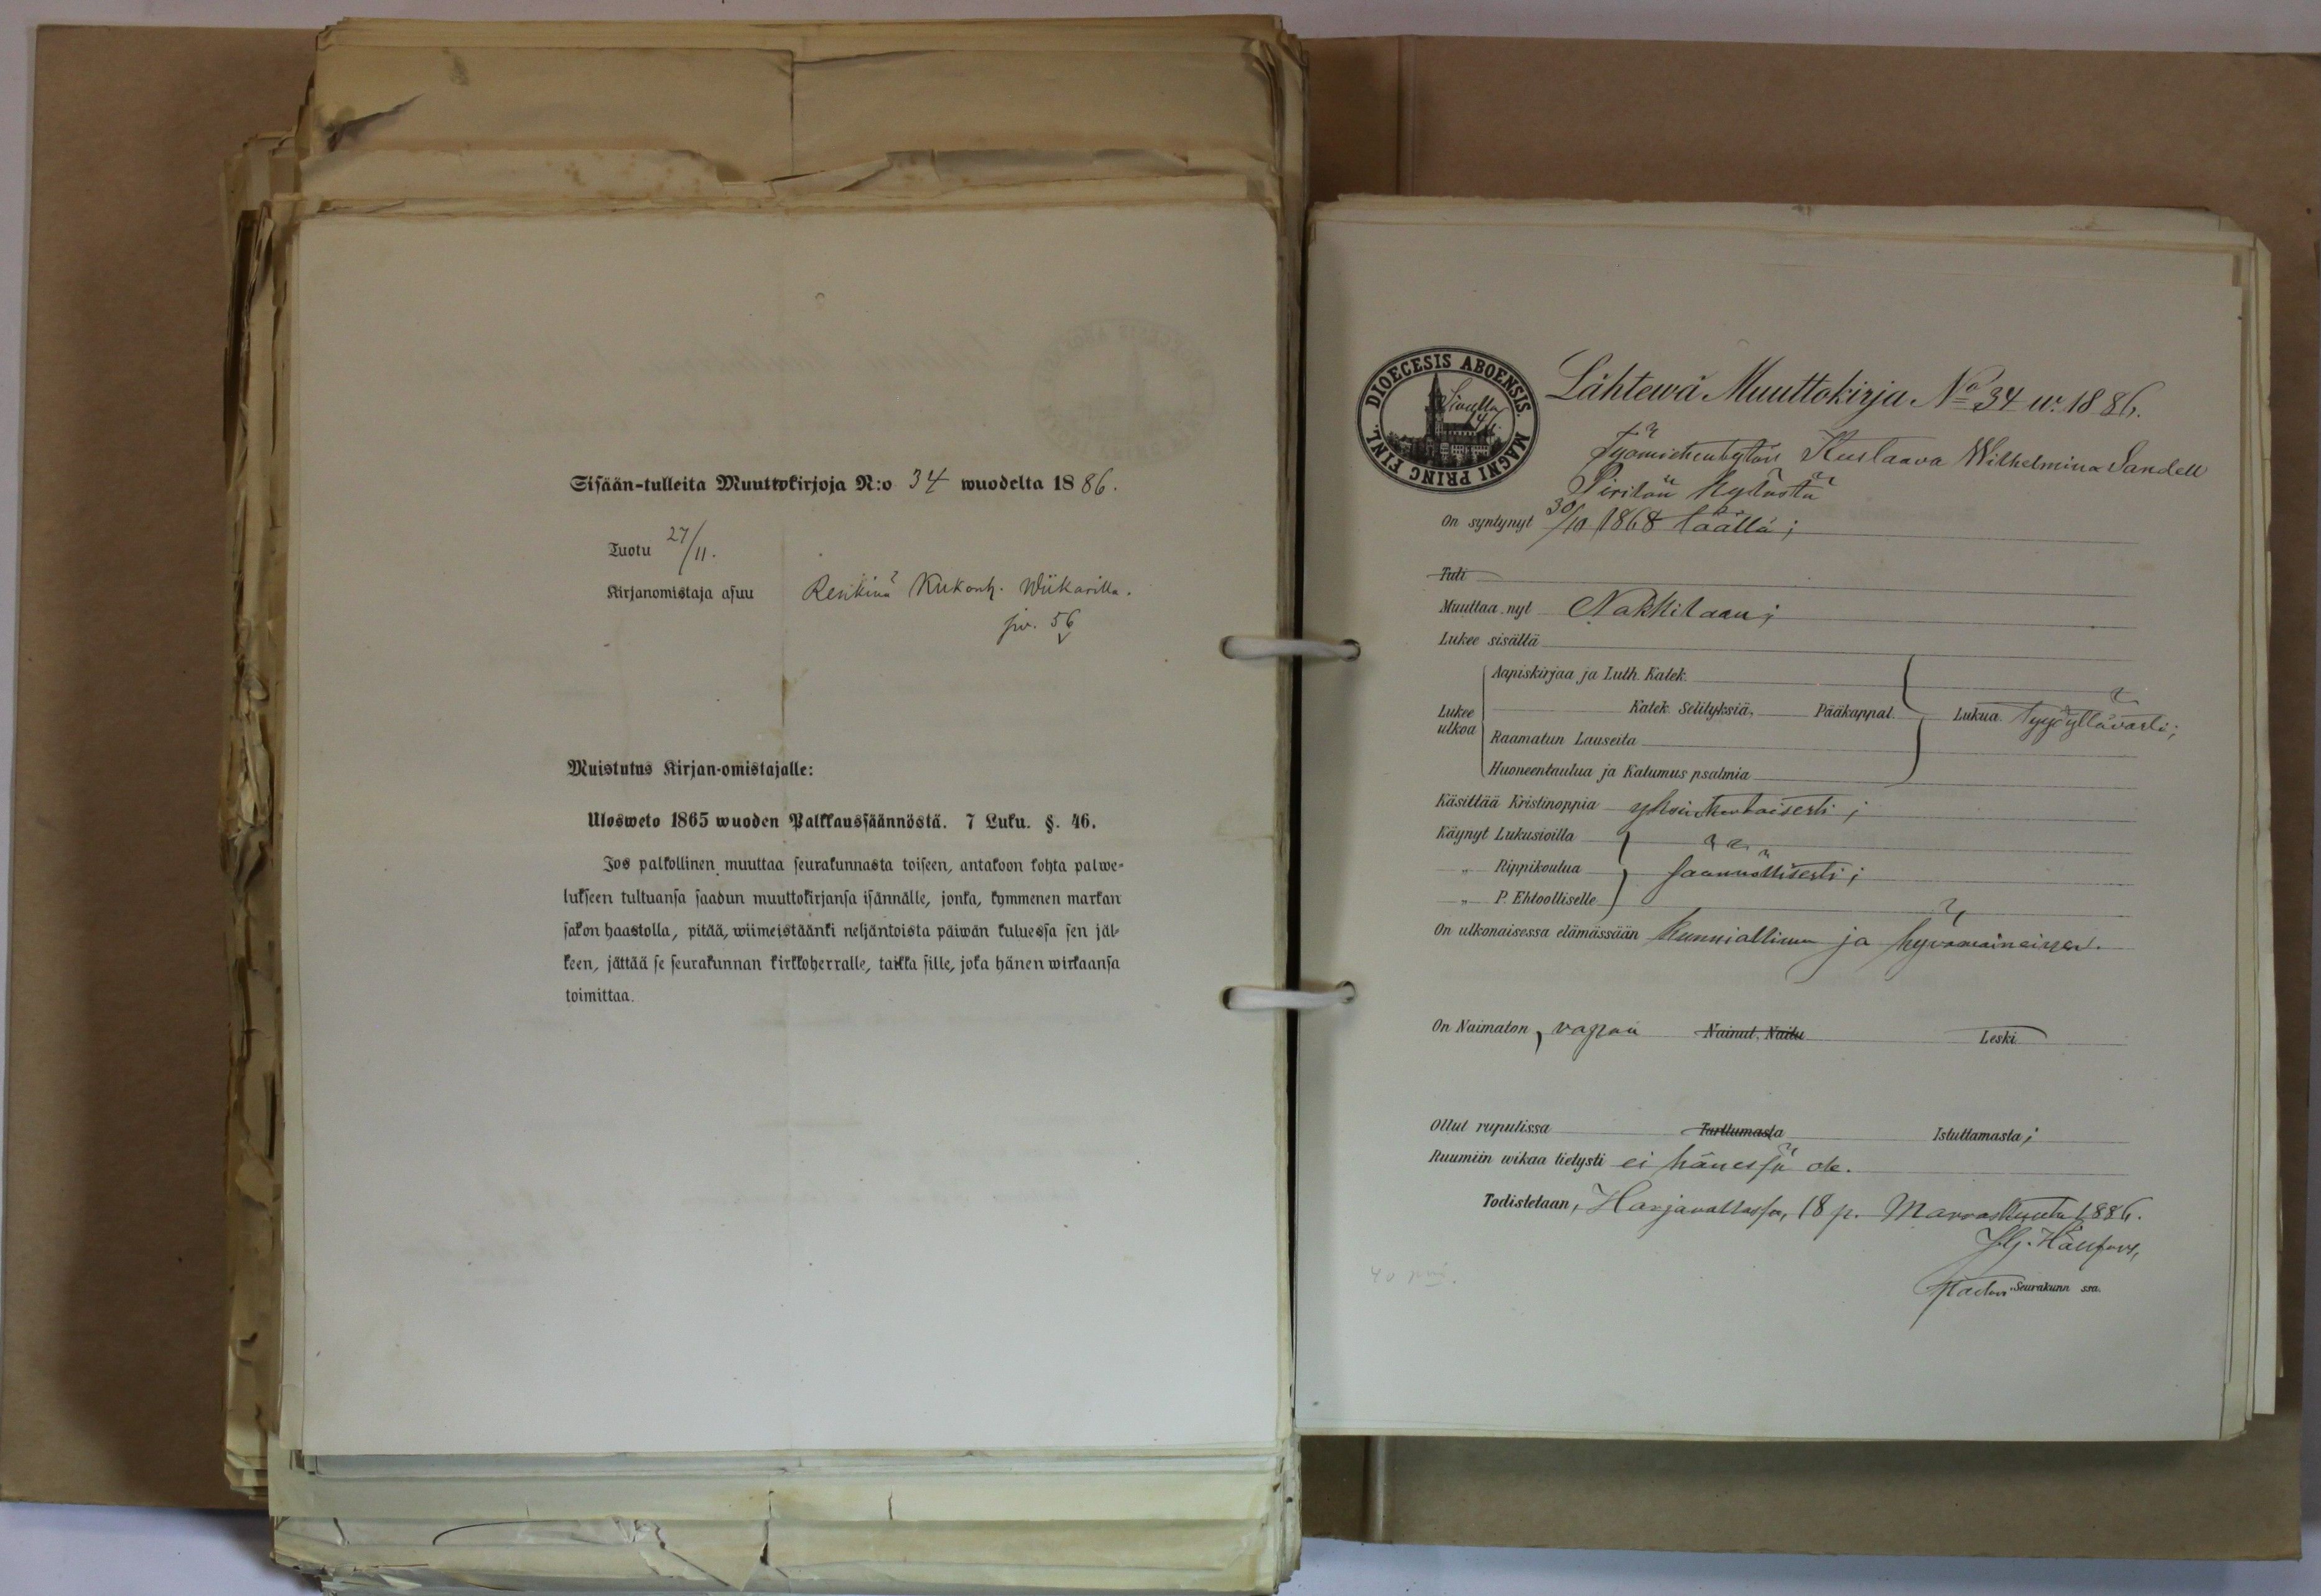 Sisään-tulleita Muuttokirjoja N:o 34 wuodelta 1886.
Tuotu 27/11.
Kirjanomistaja asuu Renkinä Kukonh. Wiikarilla.
siv. 56
Muistutus Kirjan-omistajalle:
Ulosweto 1865 wuoden Palkkaussäännöstä. 7 Luku. §. 46.
Jos palkollinen muuttaa seurakunnasta toiseen, antakoon kohta palwe-
lukseen tultuansa saadun muuttokirjansa isännälle, jonka, kymmenen markan
sakon haastolla, pitää, wiimeistäänki neljäntoista päiwän kuluessa sen jäl-
keen, jättää se seurakunnan kirkkoherralle, taikka sille, joka hänen wirkaansa
toimittaa.
DIOECESIS ABOENSIS. MAGNI PRINC FINL.
Sivulla
Lähtewä Muuttokirja No 34 w. 1886.
Työmiehentytön Kustaava Wilhelmina Sandell
Pirilän kylästä
On syntynyt 30/10 1868 täällä;
Tuli
Muuttaa nyt Nakkilaan;
Lukee sisältä
Aapiskirjaa ja Luth. Katek.
Lukee ulkoa
Katek. Selityksiä, Pääkappal. Lukua. tyydyttävästi;
Raamatun Lauseita
Huoneentaulua ja Katumus psalmia
Käsittää Kristinoppia yksinkertaisesti;
Käynyt Lukusioilla
" Rippikoulua säännöllisesti;
" P. Ehtoolliselle
On ulkonaisessa elämässään kunniallinen ja hyvämaineinen.
On Naimaton, vapaa Nainut, Naitu Leski
Ollut rupulissa Tarttumasta Istuttamasta;
Ruumiin wikaa tietysti ei hänessä ole.
Todistetaan, Harjavallassa, 18 p. Marraskuuta 1886.
Seurakunn ssa.
40 pni.